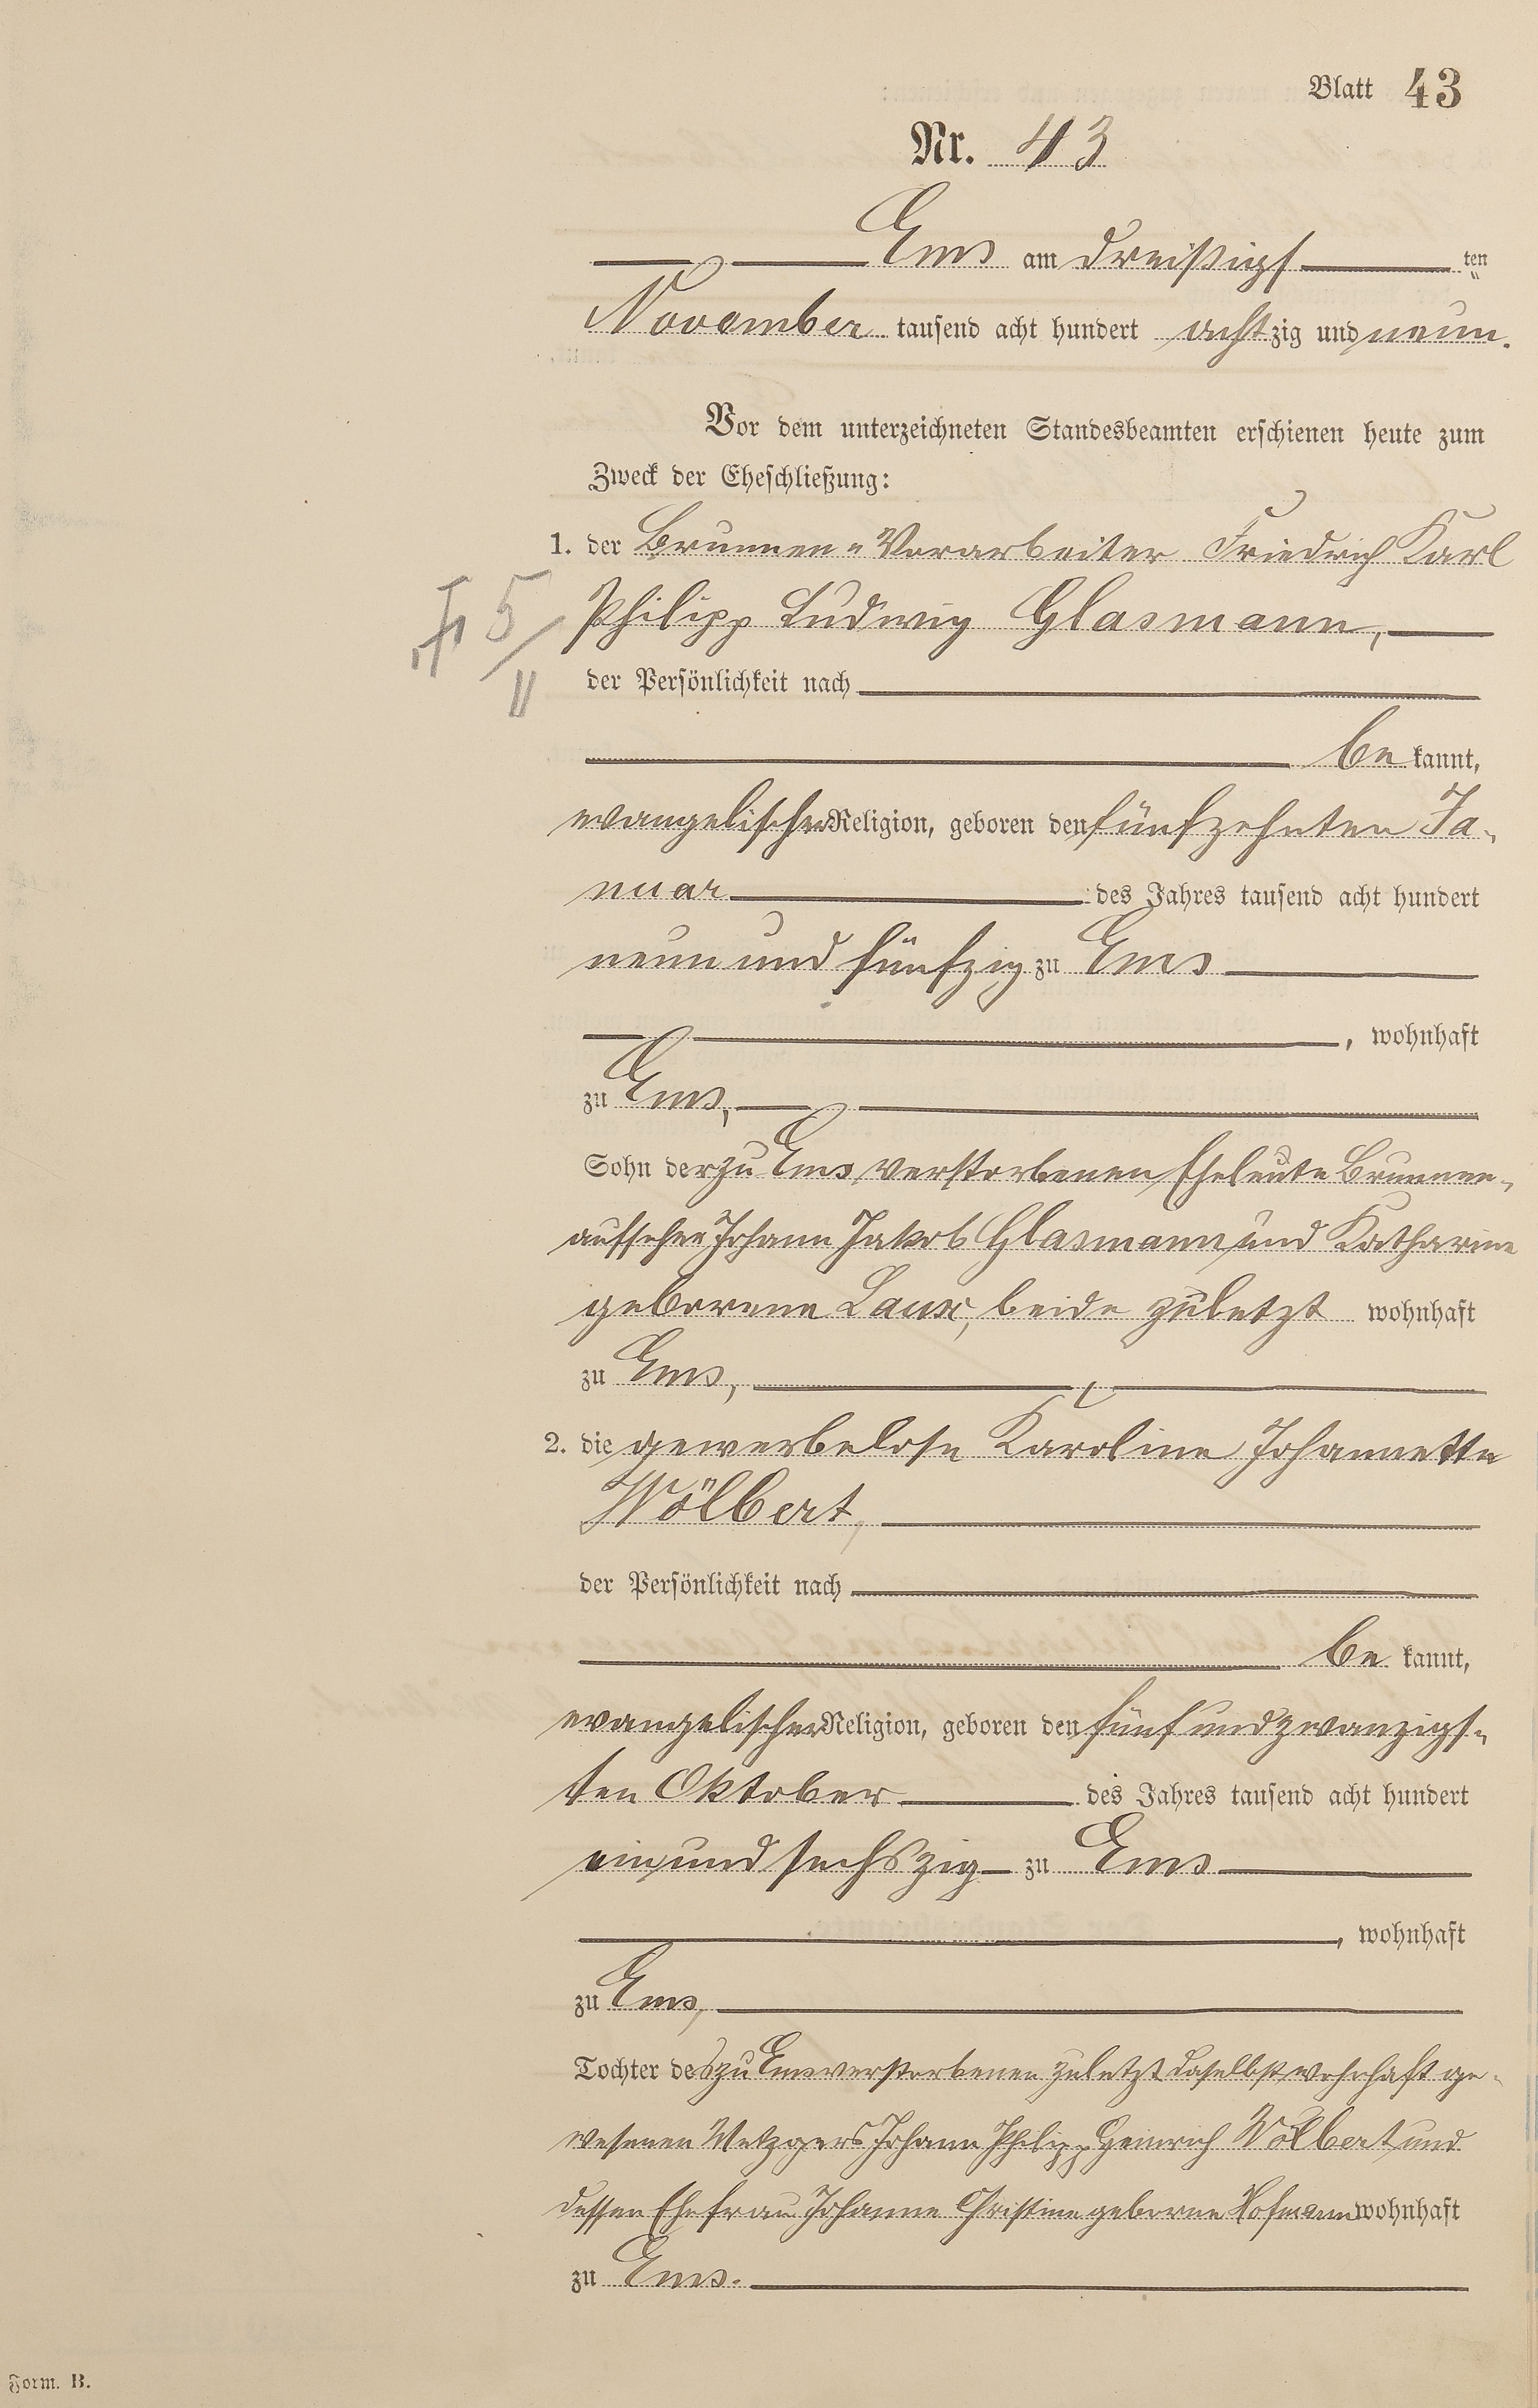 Blatt 43
Nr. 43
Ems am dreißigs ten
November tausend acht hundert achtzig und neun.
Vor dem unterzeichneten Standesbeamten erschienen heute zum
Zweck der Eheschließung:
1. der Brunnen-Vorarbeiter Friedrich Karl
Philipp Ludwig Glasmann,
der Persönlichkeit nach
bekannt,
evangelischer Religion, geboren den fünfzehnten Ja-
nuar des Jahres tausend acht hundert
neun und fünfzig zu Ems
, wohnhaft
zu Ems,
Sohn der zu Ems verstorbenen Eheleute Brunnen-
aufseher Johann Jakob Glasmann und Katharine
geborene Laux, beide zuletzt wohnhaft
zu Ems,
2. die gewerbelose Karoline Johannette
Wölbert,
der Persönlichkeit nach
bekannt,
evangelischer Religion, geboren den fünf und zwanzigs-
ten Oktober des Jahres tausend acht hundert
ein und sechszig zu Ems
, wohnhaft
zu Ems,
Tochter des zu Ems verstorbenen zuletzt daselbst wohnhaft ge-
wesenen Metzgers Johann Philipp Heinrich Wölbert und
dessen Ehefrau Johanne Christine geborne Hofmann wohnhaft
zu Ems.
Form. B.